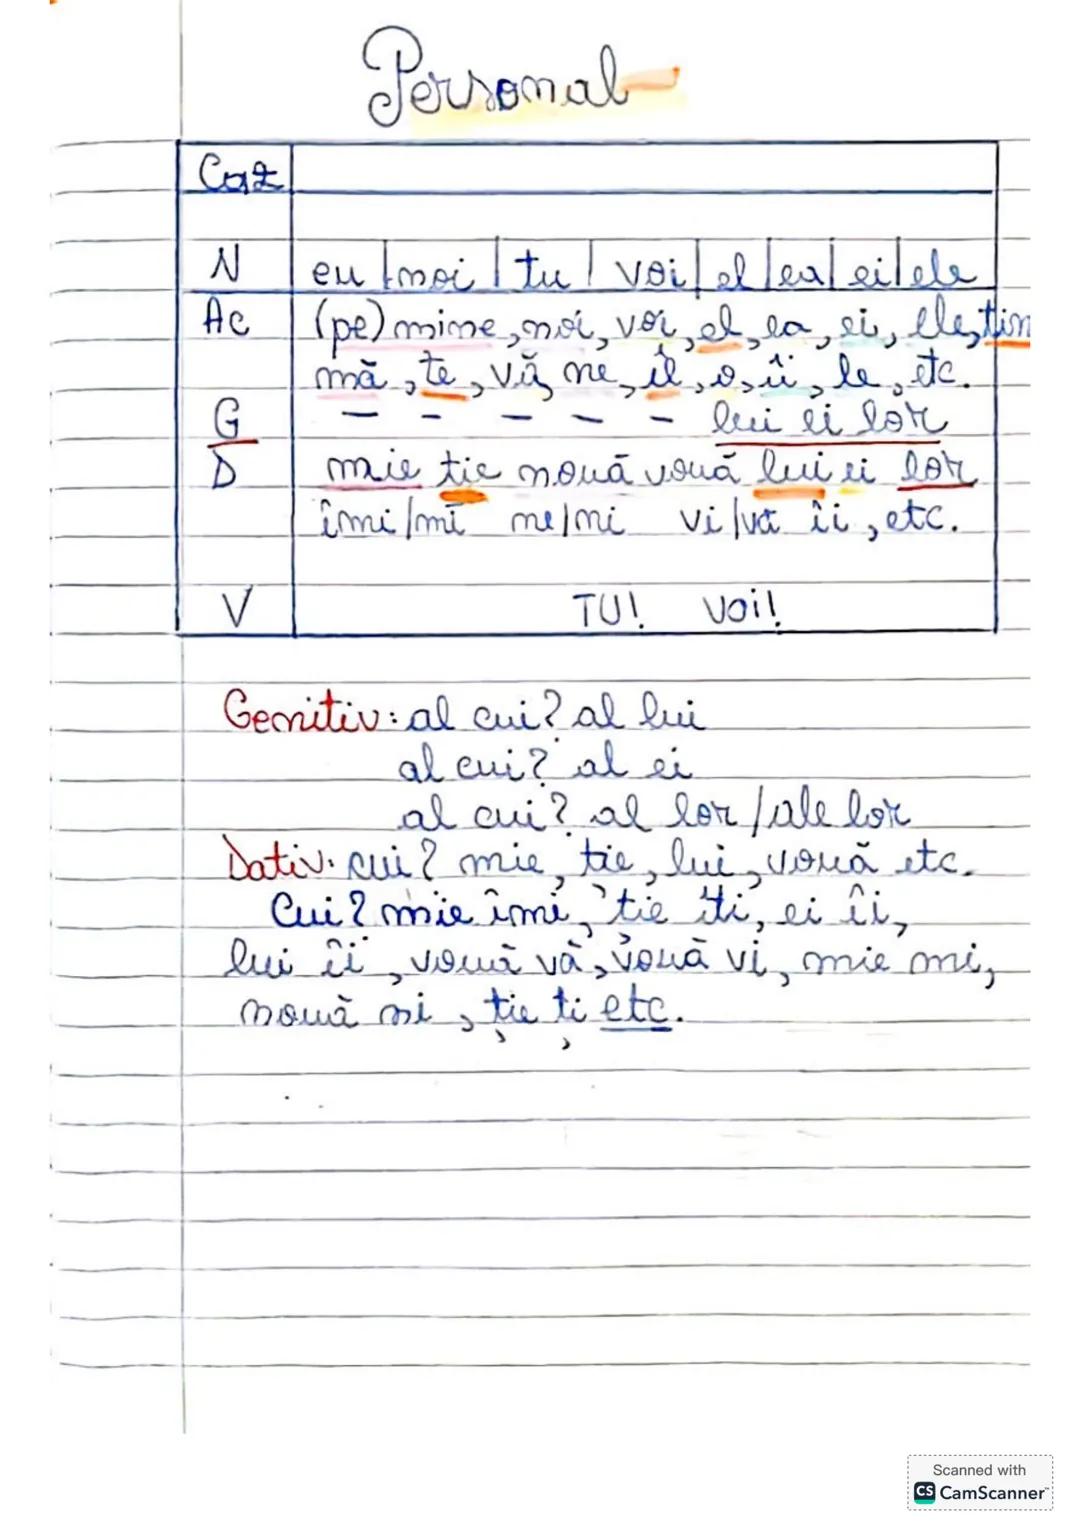 Personal
Caz
N eu noi tu voi el ea ei ele
Ac (pe) mine, noi, voi, el, ea, ei, ele, tin
mă, te, vă, ne, îl, o, îi, le, etc.
G — — — — — lui ei lor
D mie ție nouă vouă lui ei lor
îmi/mi ne/ni vi/vă îi, etc.
V TU! VOI!
Genitiv: al cui? al lui
al cui? al ei
al cui? al lor/ale lor
Dativ: cui? mie, ție, lui, vouă etc.
Cui? mie îmi, ție îți, ei îi,
lui îi, vouă vă, vouă vi, mie mi,
nouă ni, ție ți etc.
Scanned with
CS CamScanner